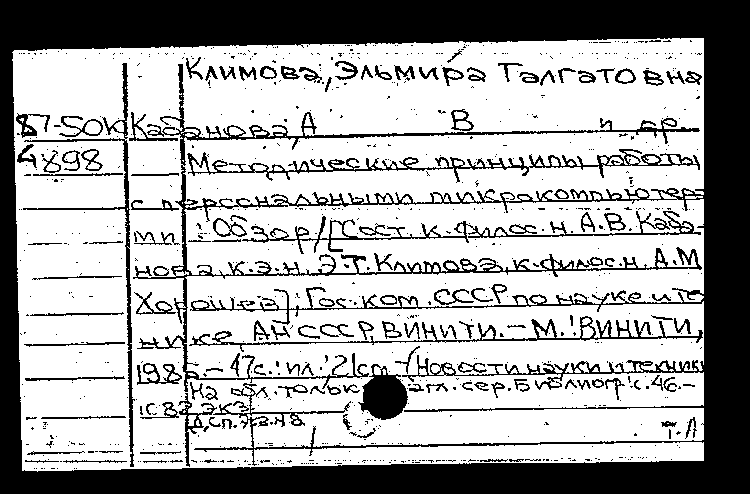 Климова, Эльмира Талгатовна
87-50К Кабанова, А В и др.
4898 Методические принципы работы
с персональными микрокомпьютера
ми : Обзор / [Сост. к. филос. н. А. В. Каба-
нова, к. э. н. Э. Т. Климова, к. филос. н. А. М
Хорошев]; Гос. ком. СССР по науке и те
нике, АН СССР, ВИНИТИ. - М. : ВИНИТИ,
1985. - 47 с. : ил. ; 21 cm - (Новости науки и техники
На обл. только загл. сер. Библиогр.: с. 46. -
1C 82 экз
т-Л